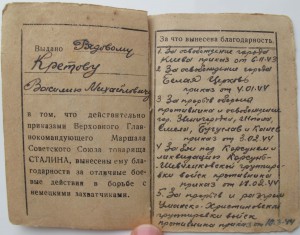 Выдано Рядовому
Кретову
Василию Михайловичу
в том, что действительно
приказами Верховного Глав-
нокомандующего Маршала
Советского Союза товарища
СТАЛИНА, вынесены ему бла-
годарности за отличные бое-
вые действия в борьбе с
немецкими захватчиками.
За что вынесена благодарность.
1. За освобождение города
Киева приказ от 6.11.43
2. За освобождение города
Белая Церковь
приказ от 4.01.44
3. За прорыв обороны
противника и освобождение
гор. Звенигородка, Шпола,
Смела, Богуслав и Канев
приказ от 3.02.44
4. За бои под Корсунем и
ликвидацию Корсунь-
Шевченковской группиров-
ки войск противника
приказ от 18.02.44
5. За прорыв и разгром
Уманско-Христиновской
группировки войск
противника приказ от